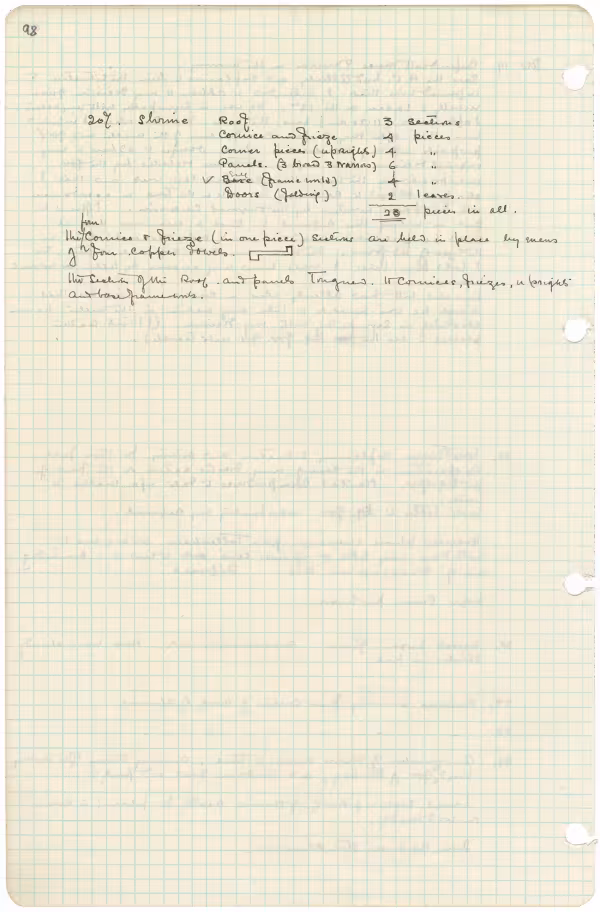 98
207. Shrine Roof 3 sections
Cornice and frieze 4 pieces
Corner pieces (uprights) 4 "
Panels. (3 broad 3 narrow) 6 "
✓ Base (framework) 4 "
Doors (folding) 2 leaves.
23 pieces in all.
four
The Cornice & frieze (in one piece) sections are held in place by means
of four copper dowels.
The sections of the Roof and panels Tongued. to Cornices, friezes, uprights
and base frameworks.